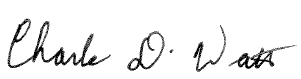 Charles D. Watts